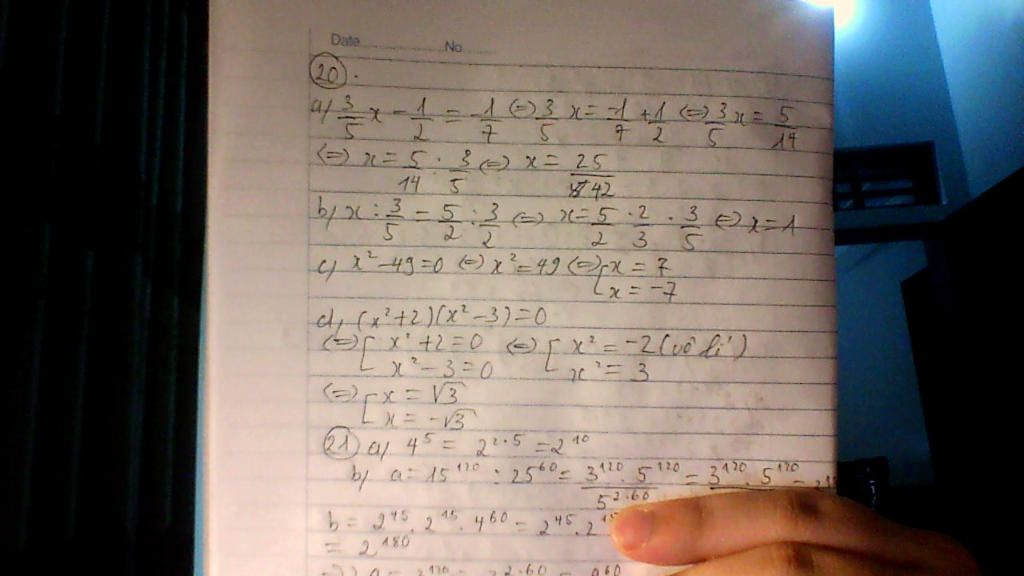 Date No
20.
a) 3/5 x - 1/2 = -1/7 (=) 3/5 x = -1/7 + 1/2 (=) 3/5 x = 5/14
(=) x = 5/14 . 3/5 (=) x = 25/42
b) x : 3/5 = 5/2 : 3/2 (=) x = 5/2 . 2/3 . 3/5 (=) x = 1
c) x² - 49 = 0 (=) x² = 49 (=) [ x = 7
x = -7
d) (x² + 2)(x² - 3) = 0
(=) [ x² + 2 = 0 (=) [ x² = -2 (vô lí)
x² - 3 = 0 x² = 3
(=) [ x = √3
x = -√3
21 a) 4⁵ = 2^2.5 = 2¹⁰
b) a = 15¹²⁰ : 25⁶⁰ = 3¹²⁰ . 5¹²⁰ / 5^2.60 = 3¹²⁰ . 5¹²⁰ =
b = 2⁴⁵ . 2¹⁵ . 4⁶⁰ = 2⁴⁵ . 2¹⁵
= 2¹⁸⁰
a = 3¹²⁰ = 3^2.60 = 9⁶⁰